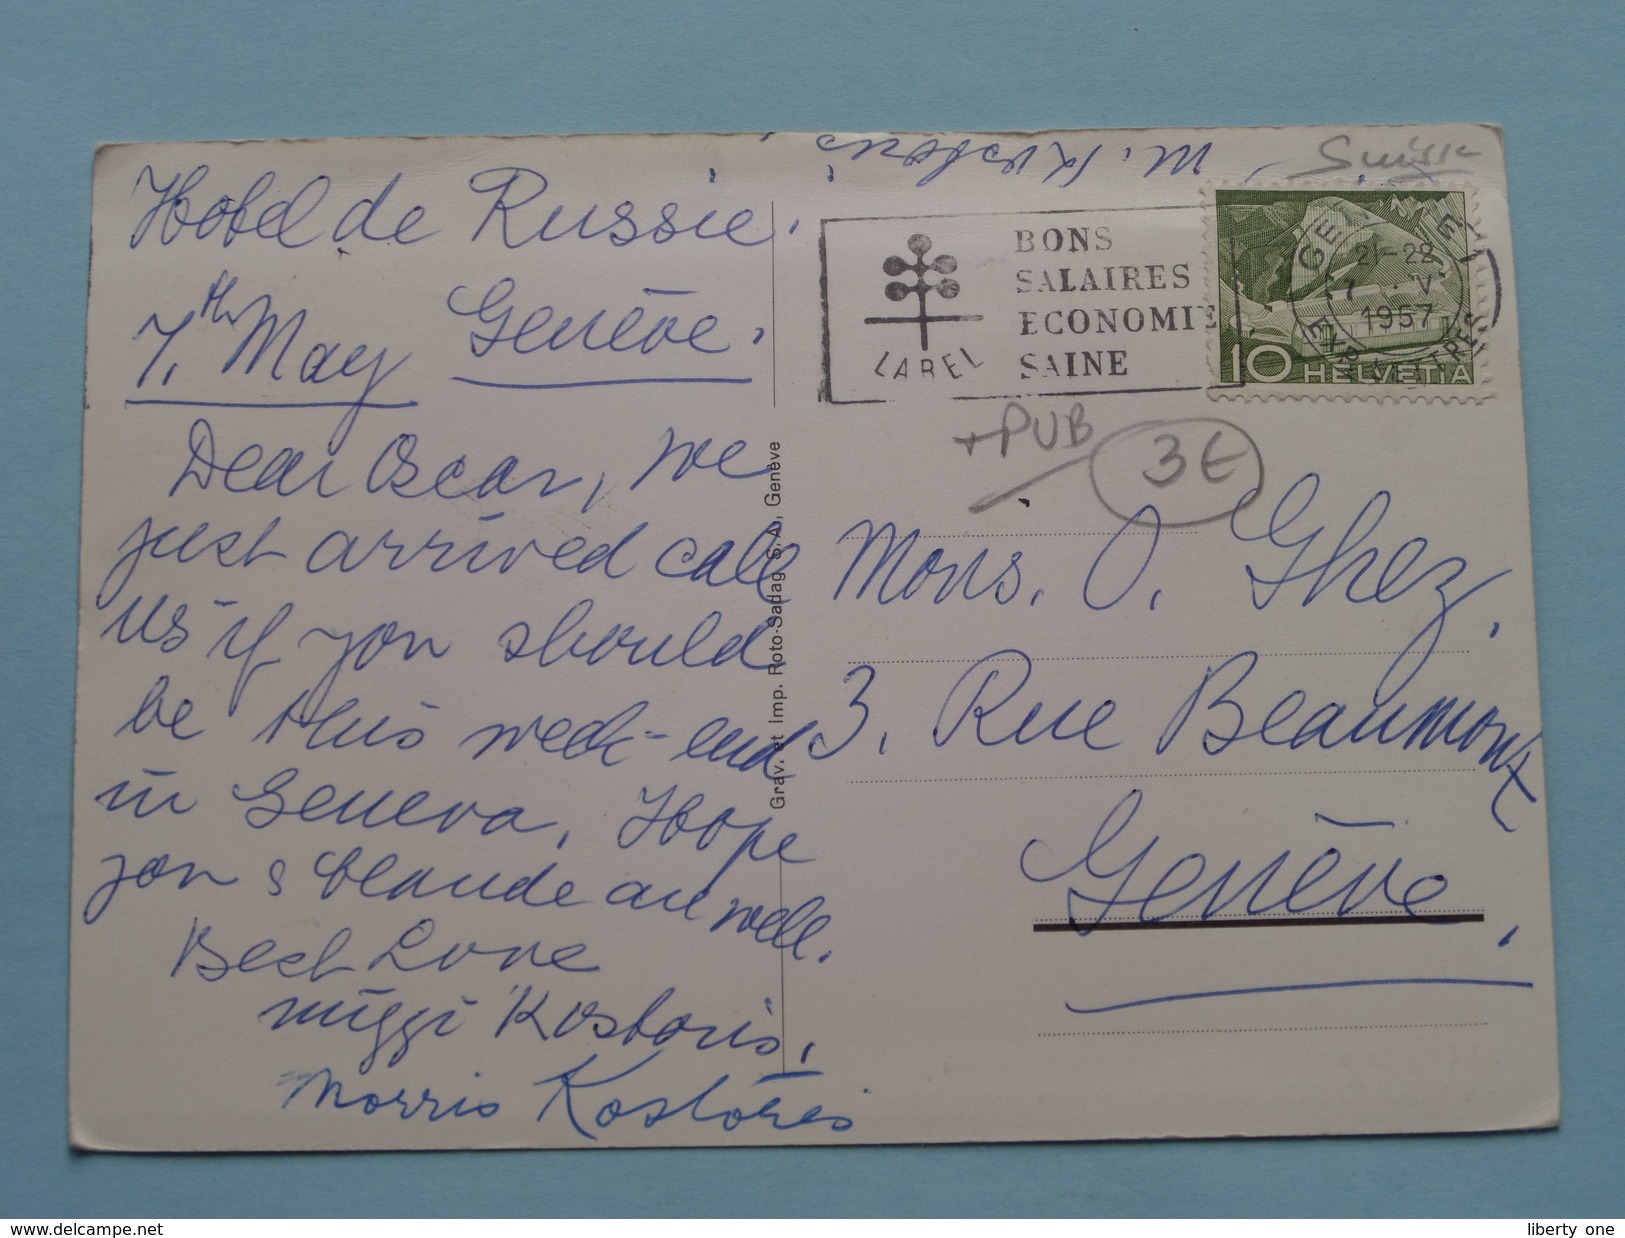 Hotel de Russie.
Genève.
7th May
Dear Oscar, we
just arrived call
us if you should
be this week-end
in Geneva. Hope
you & Claude are well.
Best Love
Miggi Kostoris.
Morris Kostoris
Grav. et Imp. Roto-Sadag S. A., Genève
M. Kostoris
Suisse
BONS
SALAIRES
ECONOMIE
SAINE
LABEL
GENEVE 1
21-22
7 V
1957
EXP. LETTRES
10 HELVETIA
+ PUB
3€
Mons. O. Ghez,
3, Rue Beaumont
Genève,
delcampe.net
liberty_one